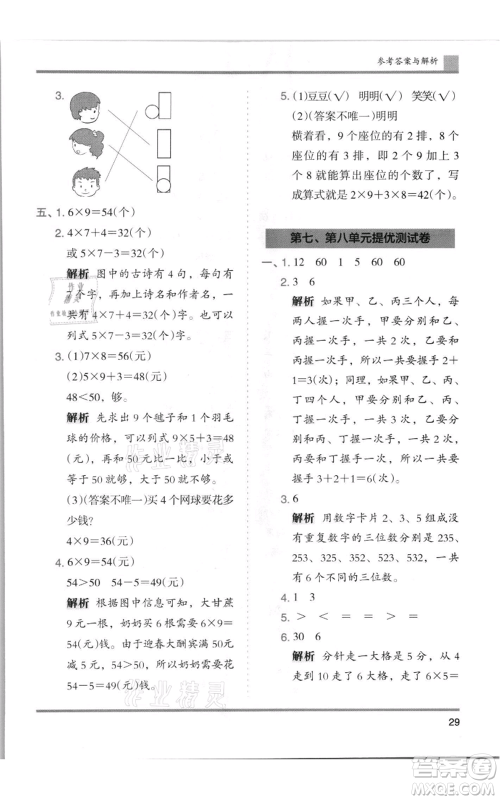 参考答案与解析
3.
五、1. 6×9=54(个)
2. 4×7+4=32(个)
或5×7-3=32(个)
解析 图中的古诗有4句，每句有
7个字，再加上标题中的4个字，也可以
列式为5×7-3=32(个)。
3. (1)7×8=56(元)
(2)9×5+3=48(元)
48<50，够。
解析 先求出9个毽子和1个羽毛
球的价格，可以列式9×5+3=48
(元)。再和50元比一比，小于或等于
50元就够，大于50元就不够。
(3)(答案不唯一)买4个网球要花多
少钱?
4×9=36(元)
4. 6×9=54(元)
54>50 54-5=49(元)
解析 根据图中信息可知，大甘蔗
9元一根，奶奶买6根要花6×9=
54(元)。由于迎春大酬宾满50元减
5元，54>50，所以奶奶实际需要花
54-5=49(元)。
5. (1)豆豆(√) 明明(√) 笑笑(√)
(2)(答案不唯一)明明
横着看，9个座位的有2排，8个
座位的有3排，把它们加起来
就能算出座位的个数了，写
成算式就是2×9+3×8=42(个)
第七、第八单元提优测试卷
一、1. 12 60 1 5 60 60
2. 3 6
解析 如果甲、乙、丙三个人，每
两人握一次手，甲要分别与乙、丙
握一次手，共握2次，乙还要与丙
握一次手，所以一共要握手2+
1=3(次)；同理，如果甲、乙、丙、
丁四个人，每两人握一次手，甲要
分别与乙、丙、丁握一次手，共握
3次，乙还要分别与丙、丁握一次
手，共握2次，最后丙还要与丁握
一次手，共握1次，所以一共要
握手3+2+1=6(次)。
3. 6
解析 用数字卡片2、3、5组成没
有重复数字的三位数分别是235、
253、325、352、523、532，所以有
6个不同的三位数。
4. 1 3
5. > < = = <
6. 30 6
解析 分针走一大格是5分，从4
走到10走了6大格，走了6×5=
29